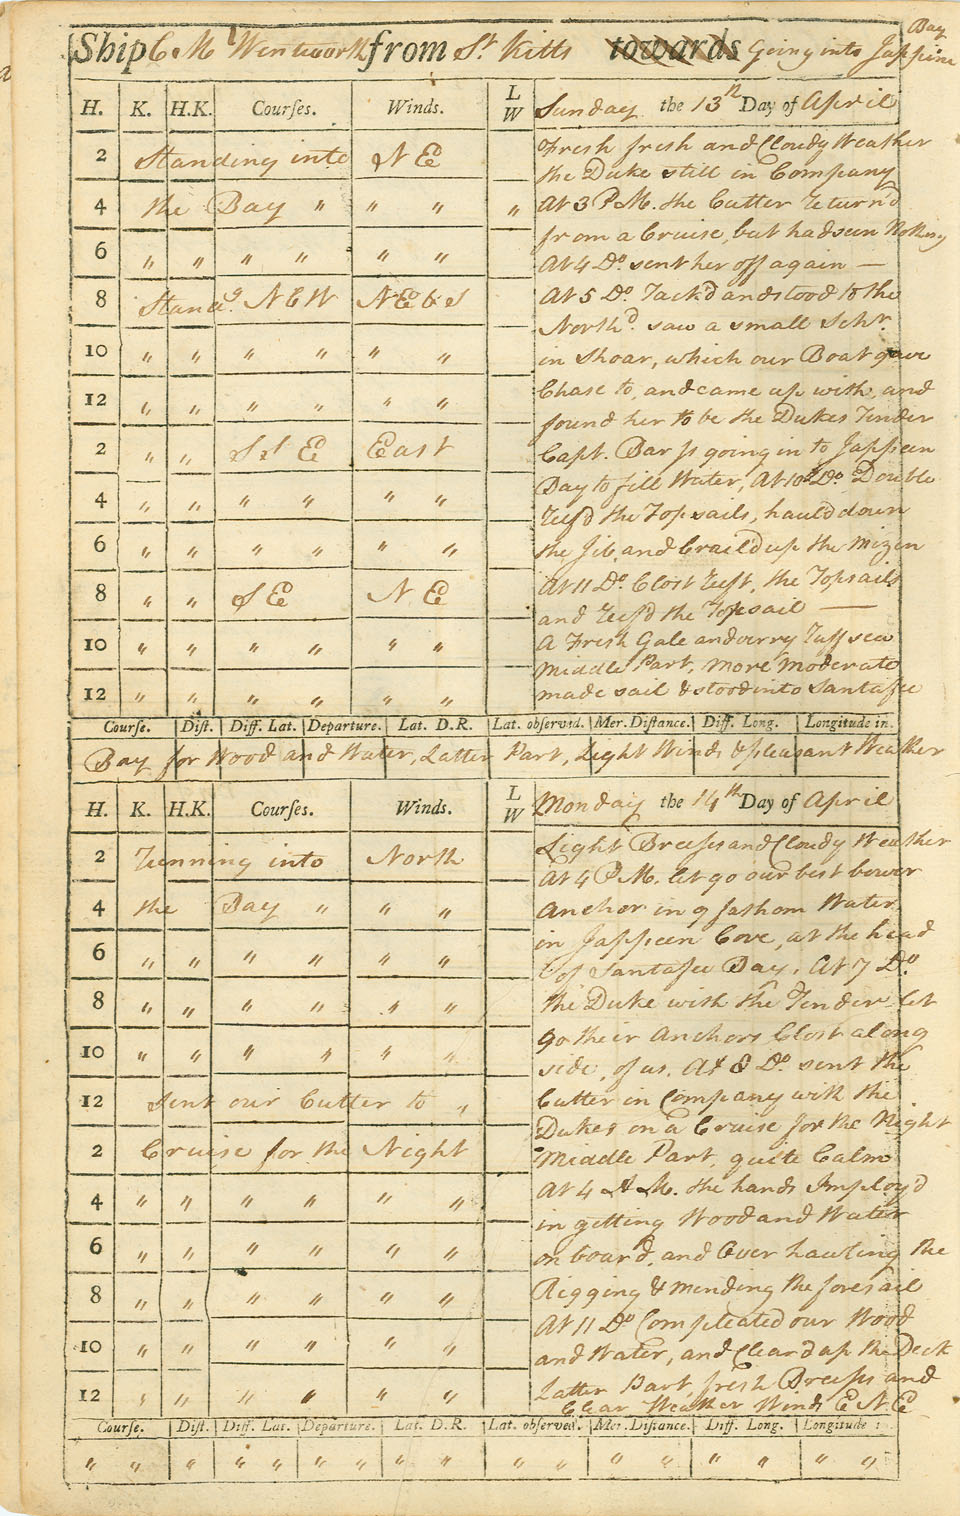 Ship C. M. Wentworth from St. Kitts towards Going into Jappeen Bay
H. K. H.K. Courses. Winds. L W Sunday the 13th Day of April
2 Standing into N E
4 the Bay " " " "
6 " " " " " "
8 Standg. N E W N E b S
10 " " " " " "
12 " " " " " "
2 " " S E East
4 " " " " " "
6 " " " " " "
8 " " S E N E
10 " " " " " "
12 " " " " " "
Fresh fresh and Cloudy Weather
the Duke still in Company
At 3 P M. the Cutter return'd
from a Cruise, but had seen Nothing
At 4 Do. sent her off again —
At 5 Do. Tack'd and stood to the
Northd. saw a small Schr.
in Shoar, which our Boat gave
Chase to, and came up with, and
found her to be the Dukes Tender
Capt. Bar is going in to Jappeen
Bay to fill Water, At 10 Do. Double
reef'd the Topsails, hauld down
the Jib, and brail'd up the Mizen
At 11 Do. Clost reeft, the Topsails
and reef'd the Topsail —
A Fresh Gale and verry Ruff sea
Middle Part, more moderate
made sail & stood into Santafee
Course. Dist. Diff. Lat. Departure. Lat. D.R. Lat. observed. Mer. Distance. Diff. Long. Longitude in.
Bay for Wood and Water, Latter Part, Light Winds & pleasant Weather
H. K. H.K. Courses. Winds. L W Monday the 14th Day of April
2 Running into North
4 the Bay " " "
6 " " " " " "
8 " " " " " "
10 " " " " " "
12 Sent our Cutter to "
2 Cruise for the Night
4 " " " " " "
6 " " " " " "
8 " " " " " "
10 " " " " " "
12 " " " " " "
Light Breeses and Cloudy Weather
At 4 P M. let go our best bower
Anchor in 9 fathom Water,
in Jappeen Cove, at the head
of Santafee Bay. At 7 Do.
the Duke with the Tender let
go their Anchors Clost along
side, of us. At 8 Do. sent the
Cutter in Company with the
Dukes on a Cruise for the Night
Middle Part, quite Calm
At 4 A M. the hands Imploy'd
in getting Wood and Water
on board, and Over hauling the
Rigging & mending the foresail
At 11 Do. Compleated our Wood
and Water, and Clear'd up the Deck
Latter Part, fresh Breeses and
Clear Weather Wind E N E
Course. Dist. Diff. Lat. Departure. Lat. D.R. Lat. observed. Mer. Distance. Diff. Long. Longitude
" " " " " " " " " " " " " " " "